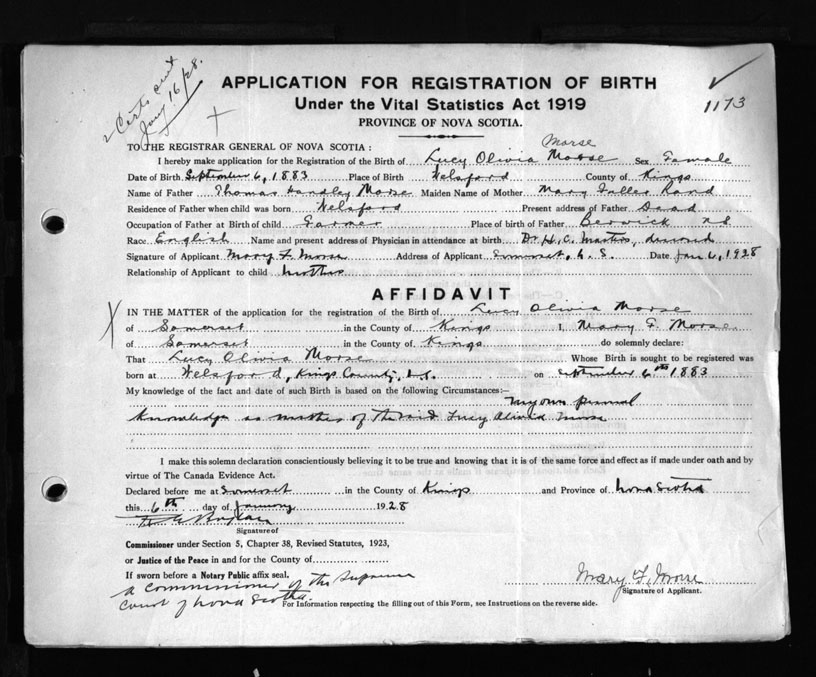 2 Certs sent
Jany 16/28.
APPLICATION FOR REGISTRATION OF BIRTH
1173
Under the Vital Statistics Act 1919
PROVINCE OF NOVA SCOTIA.
TO THE REGISTRAR GENERAL OF NOVA SCOTIA :
Morse
I hereby make application for the Registration of the Birth of Lucy Olivia Morse Sex Female
Date of Birth September 6, 1883 Place of Birth Welsford County of Kings
Name of Father Thomas Handley Morse Maiden Name of Mother Mary Fuller Rand
Residence of Father when child was born Welsford Present address of Father Dead
Occupation of Father at Birth of child Farmer Place of birth of Father Berwick
Race English Name and present address of Physician in attendance at birth Dr. H. C. Masters, deceased
Signature of Applicant Mary F. Morse Address of Applicant Somerset, N. S. Date Jan 6, 1928
Relationship of Applicant to child Mother
AFFIDAVIT
IN THE MATTER of the application for the registration of the Birth of Lucy Olivia Morse
of Somerset in the County of Kings I, Mary F. Morse
of Somerset in the County of Kings do solemnly declare:
That Lucy Olivia Morse Whose Birth is sought to be registered was
born at Welsford, Kings County, N.S. on September 6th 1883
My knowledge of the fact and date of such Birth is based on the following Circumstances:— my own personal
knowledge as mother of the said Lucy Olivia Morse
I make this solemn declaration conscientiously believing it to be true and knowing that it is of the same force and effect as if made under oath and by
virtue of The Canada Evidence Act.
Declared before me at Somerset in the County of Kings and Province of Nova Scotia
this 6th day of January 1928
Signature of
Commissioner under Section 5, Chapter 38, Revised Statutes, 1923,
or Justice of the Peace in and for the County of
If sworn before a Notary Public affix seal.
Mary F. Morse
a commissioner of the Supreme
Signature of Applicant.
Court of Nova Scotia.
For Information respecting the filling out of this Form, see Instructions on the reverse side.